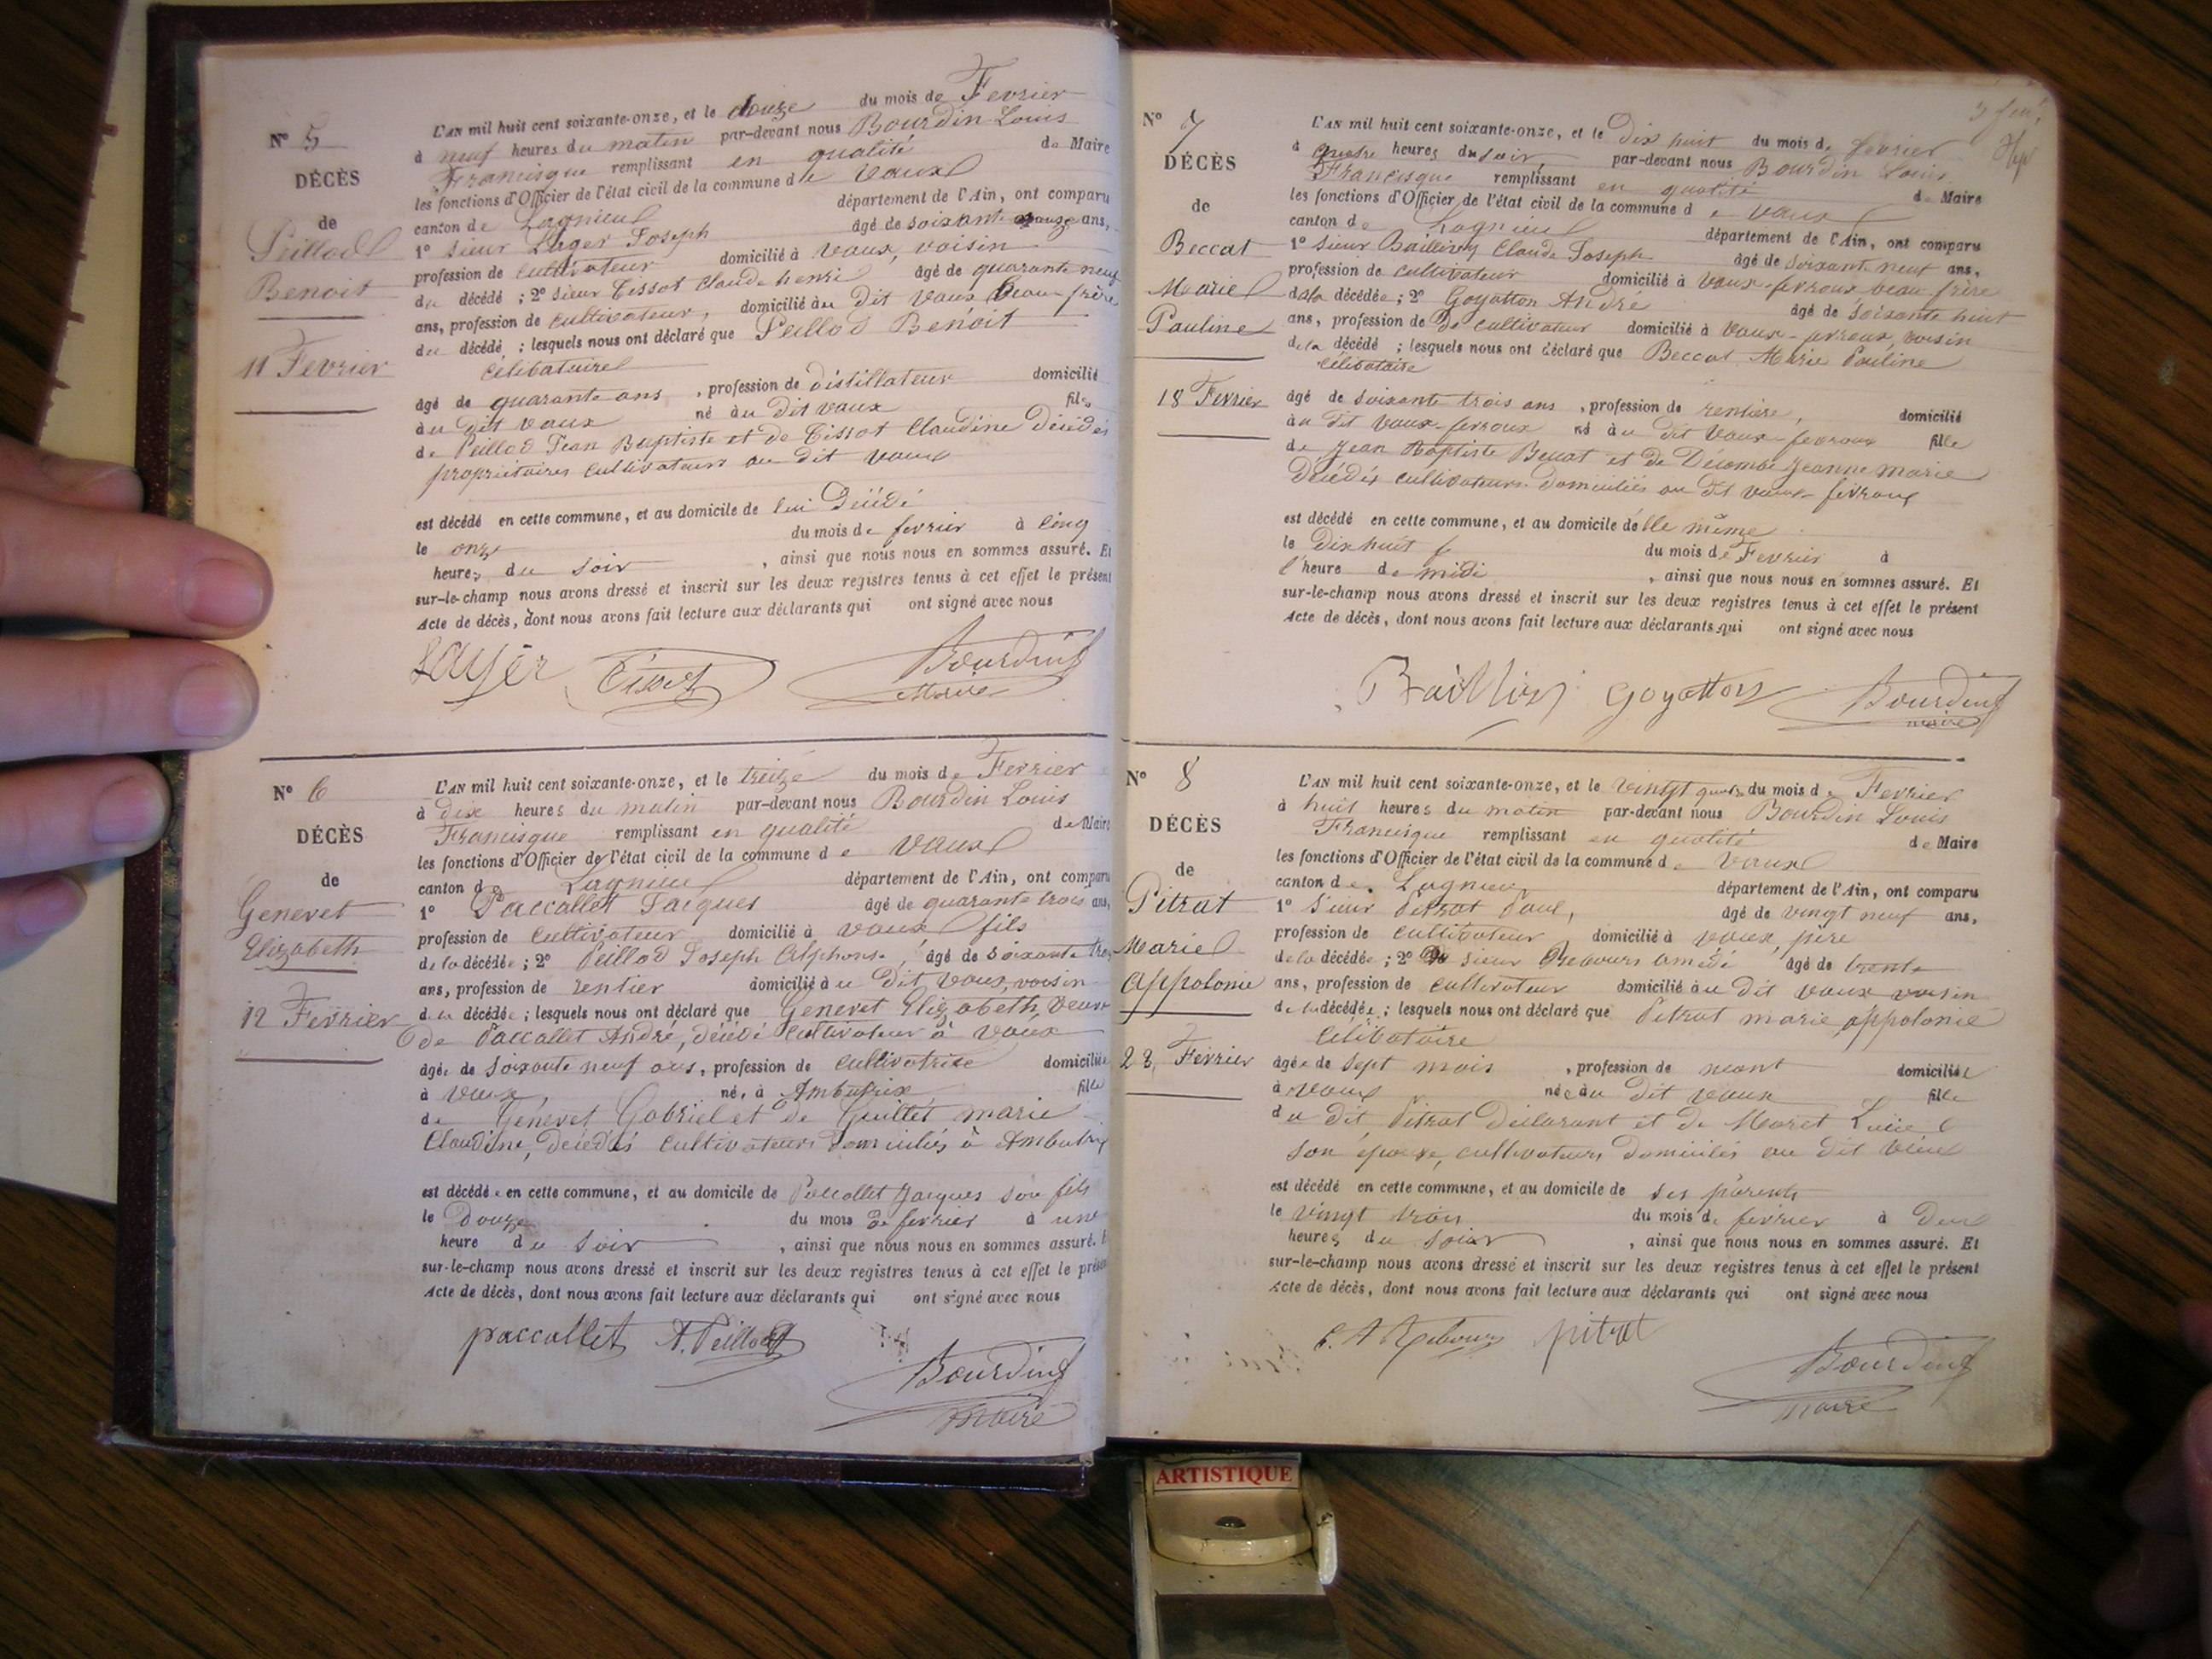 N° 5
DÉCÈS
de
Peillod
Benoit
11 Fevrier
L'AN mil huit cent soixante-onze, et le douze du mois de Fevrier
à neuf heures du matin par-devant nous Bourdin Louis
Francisque remplissant en qualité de Maire
les fonctions d'Officier de l'état civil de la commune de Vaux
canton de Lagnieu département de l'Ain, ont comparu
1° Sieur Lager Joseph âgé de soixante onze ans,
profession de cultivateur domicilié à Vaux, voisin
du décédé ; 2° Sieur Tissot Claude henri âgé de quarante neuf
ans, profession de cultivateur, domicilié au dit Vaux beau-frère
du décédé ; lesquels nous ont déclaré que Peillod Benoit
célibataire
âgé de quarante ans , profession de distillateur domicilié
au dit vaux né au dit vaux fils
de Peillod Jean Baptiste et de Tissot Claudine décédés
propriétaires cultivateurs au dit vaux
est décédé en cette commune, et au domicile de lui décédé
le onze du mois de fevrier à cinq
heures du soir , ainsi que nous nous en sommes assuré. Et
sur-le-champ nous avons dressé et inscrit sur les deux registres tenus à cet effet le présent
Acte de décès, dont nous avons fait lecture aux déclarants qui ont signé avec nous
Lager Tissot Bourdin
Maire
N° 6
DÉCÈS
de
Genevet
Elizabeth
12 Fevrier
L'AN mil huit cent soixante-onze, et le treize du mois de Fevrier
à dix heures du matin par-devant nous Bourdin Louis
Francisque remplissant en qualité de Maire
les fonctions d'Officier de l'état civil de la commune de Vaux
canton de Lagnieu département de l'Ain, ont comparu
1° Paccallet Jacques âgé de quarante trois ans,
profession de cultivateur domicilié à vaux fils
de la décédée ; 2° Peillod Joseph Alphonse, âgé de soixante trois
ans, profession de rentier domicilié au dit Vaux, voisin
du décédée ; lesquels nous ont déclaré que Genevet Elizabeth, veuve
de Paccallet André, décédé cultivateur à Vaux
âgée de soixante neuf ans, profession de cultivatrice domiciliée
à Vaux, née à Ambutrix fille
de Genevet Gabriel et de Guillet marie
Claudine, décédés cultivateurs domiciliés à Ambutrix
est décédée en cette commune, et au domicile de Paccallet Jacques son fils
le Douze du mois de fevrier à une
heure du soir , ainsi que nous nous en sommes assuré. E
sur-le-champ nous avons dressé et inscrit sur les deux registres tenus à cet effet le présen
Acte de décès, dont nous avons fait lecture aux déclarants qui ont signé avec nous
paccallet A. Peillod
Bourdin
maire
N° 7
DÉCÈS
de
Beccat
Marie
Pauline
18 Fevrier
L'AN mil huit cent soixante-onze, et le dix huit du mois de fevrier
à quatre heures du soir, par-devant nous Bourdin Louis
Francisque remplissant en qualité de Maire
les fonctions d'Officier de l'état civil de la commune de Vaux
canton de Lagnieu département de l'Ain, ont comparu
1° Sieur Claude Joseph âgé de soixante neuf ans,
profession de cultivateur domicilié à Vaux-fevroux beau frère
de la décédée ; 2° Goyatton André âgé de soixante huit
ans, profession de De cultivateur domicilié à Vaux-fevroux, voisin
de la décédé ; lesquels nous ont déclaré que Beccat Marie Pauline
célibataire
âgé de soixante trois ans , profession de rentière, domicilié
au dit Vaux-fevroux né au dit Vaux-fevroux fille
de Jean Baptiste Beccat et de Décombe Jeanne marie
Décédés cultivateurs domiciliés au dit vaux-fevroux
est décédé en cette commune, et au domicile d'elle même
le Dix huit du mois de Fevrier à
l'heure de midi , ainsi que nous nous en sommes assuré. Et
sur-le-champ nous avons dressé et inscrit sur les deux registres tenus à cet effet le présent
Acte de décès, dont nous avons fait lecture aux déclarants qui ont signé avec nous
Goyatton Bourdin
maire
N° 8
DÉCÈS
de
Pitrat
Marie
Appolonie
23 Fevrier
L'AN mil huit cent soixante-onze, et le vingt quatre du mois de Fevrier
à huit heures du matin par-devant nous Bourdin Louis
Francisque remplissant en qualité de Maire
les fonctions d'Officier de l'état civil de la commune de Vaux
canton de Lagnieu département de l'Ain, ont comparu
1° Sieur Pitrat Paul, âgé de vingt neuf ans,
profession de cultivateur domicilié à vaux, père
de la décédée ; 2° sieur Rebours amédé âgé de trente
ans, profession de cultivateur domicilié au dit vaux voisin
de la décédée ; lesquels nous ont déclaré que Pitrat marie appolonie
Célibataire
âgée de sept mois , profession de neant domiciliée
à Vaux née au dit vaux fille
du dit Pitrat déclarant et de Moret Lucie
son épouse, cultivateurs domiciliés au dit vaux
est décédé en cette commune, et au domicile de ses parents
le vingt trois du mois de fevrier à Deux
heures du soir , ainsi que nous nous en sommes assuré. Et
sur-le-champ nous avons dressé et inscrit sur les deux registres tenus à cet effet le présent
Acte de décès, dont nous avons fait lecture aux déclarants qui ont signé avec nous
Rebours pitrat
Bourdin
maire
ARTISTIQUE